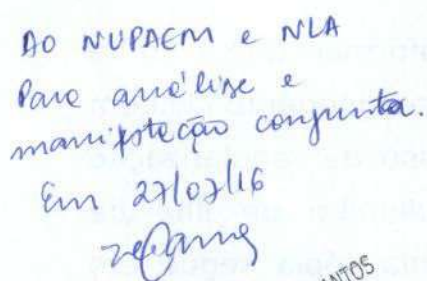 AO NUPAEM e NLA
Para análise e
manifestação conjunta.
Em 27/07/16
NTOS